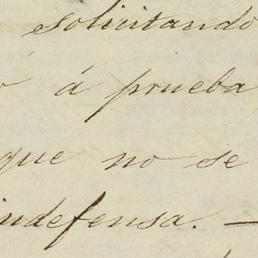 solicitando
á prueba
que no se
indefensa. —